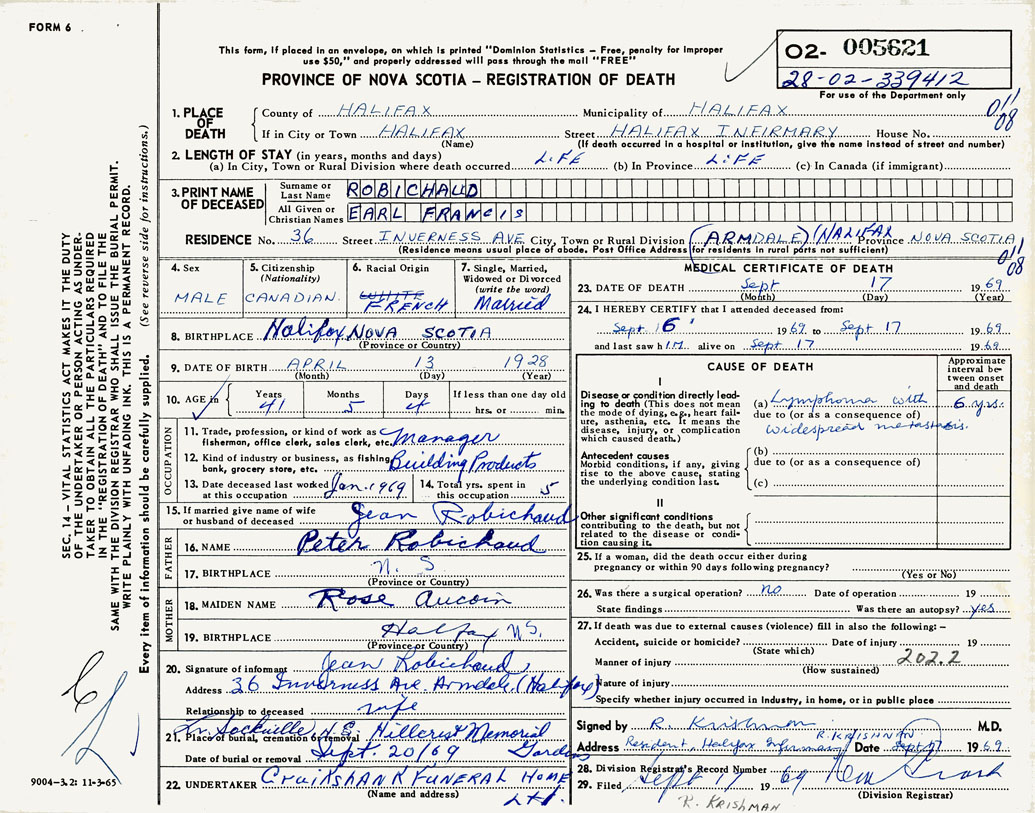 FORM 6
This form, if placed in an envelope, on which is printed "Dominion Statistics – Free, penalty for improper
use $50," and properly addressed will pass through the mail "FREE"
PROVINCE OF NOVA SCOTIA – REGISTRATION OF DEATH
02- 005621
28-02-339412
For use of the Department only
011
08
1. PLACE OF DEATH
County of HALIFAX Municipality of HALIFAX
If in City or Town HALIFAX Street HALIFAX INFIRMARY House No.
(Name) (If death occurred in a hospital or institution, give the name instead of street and number)
2. LENGTH OF STAY (in years, months and days)
(a) In City, Town or Rural Division where death occurred LIFE (b) In Province LIFE (c) In Canada (if immigrant)
3. PRINT NAME OF DECEASED
Surname or Last Name ROBICHAUD
All Given or Christian Names EARL FRANCIS
RESIDENCE No. 36 Street INVERNESS AVE City, Town or Rural Division (ARMDALE) (HALIFAX Province NOVA SCOTIA
(Residence means usual place of abode. Post Office Address for residents in rural parts not sufficient)
011
08
4. Sex
MALE
5. Citizenship
(Nationality)
CANADIAN
6. Racial Origin
WHITE
FRENCH
7. Single, Married, Widowed or Divorced
(write the word)
Married
8. BIRTHPLACE Halifax, NOVA SCOTIA
(Province or Country)
9. DATE OF BIRTH APRIL 13 1928
(Month) (Day) (Year)
10. AGE in
Years 41 Months 5 Days 4 If less than one day old
hrs. or min.
OCCUPATION
11. Trade, profession, or kind of work as fisherman, office clerk, sales clerk, etc. Manager
12. Kind of industry or business, as fishing, bank, grocery store, etc. Building Products
13. Date deceased last worked at this occupation Jan. 1969 14. Total yrs. spent in this occupation 5
15. If married give name of wife or husband of deceased Jean Robichaud
FATHER
16. NAME Peter Robichaud
17. BIRTHPLACE N. S
(Province or Country)
MOTHER
18. MAIDEN NAME Rose Aucoin
19. BIRTHPLACE Halifax N.S.
(Province or Country)
20. Signature of informant Jean Robichaud
Address 36 Inverness Ave. Armdale, (Halifax)
Relationship to deceased wife
Lr. Sackville N.S. Hillcrest Memorial
21. Place of burial, cremation or removal
Date of burial or removal Sept. 20/69 Gardens
22. UNDERTAKER Cruikshank FUNERAL HOME
(Name and address) Ltd.
MEDICAL CERTIFICATE OF DEATH
23. DATE OF DEATH Sept 17 1969
(Month) (Day) (Year)
24. I HEREBY CERTIFY that I attended deceased from:
Sept 16 1969 to Sept 17 1969
and last saw h IM alive on Sept 17 1969
CAUSE OF DEATH
Approximate interval between onset and death
I
Disease or condition directly leading to death (This does not mean the mode of dying, e.g., heart failure, asthenia, etc. It means the disease, injury, or complication which caused death.)
(a) Lymphoma with 6 yrs.
due to (or as a consequence of)
widespread metastasis.
Antecedent causes
Morbid conditions, if any, giving rise to the above cause, stating the underlying condition last.
(b)
due to (or as a consequence of)
(c)
II
Other significant conditions
contributing to the death, but not related to the disease or condition causing it.
25. If a woman, did the death occur either during
pregnancy or within 90 days following pregnancy?
(Yes or No)
26. Was there a surgical operation? no Date of operation 19
State findings Was there an autopsy? yes
27. If death was due to external causes (violence) fill in also the following: –
Accident, suicide or homicide? Date of injury 19
(State which)
Manner of injury 202.2
(How sustained)
Nature of injury
Specify whether injury occurred in Industry, in home, or in public place
Signed by R. Krishnan M.D.
R. KRISHNAN
Address Resident, Halifax Infirmary Date Sept 17 1969
28. Division Registrar's Record Number
29. Filed Sept 17 1969
(Division Registrar)
R. KRISHMAN
SEC. 14 – VITAL STATISTICS ACT MAKES IT THE DUTY
OF THE UNDERTAKER OR PERSON ACTING AS UNDER-
TAKER TO OBTAIN ALL THE PARTICULARS REQUIRED
IN THE "REGISTRATION OF DEATH" AND TO FILE THE
SAME WITH THE DIVISION REGISTRAR WHO SHALL ISSUE THE BURIAL PERMIT.
WRITE PLAINLY WITH UNFADING INK. THIS IS A PERMANENT RECORD.
Every item of information should be carefully supplied. (See reverse side for instructions.)
9004–3.2: 11-3-65